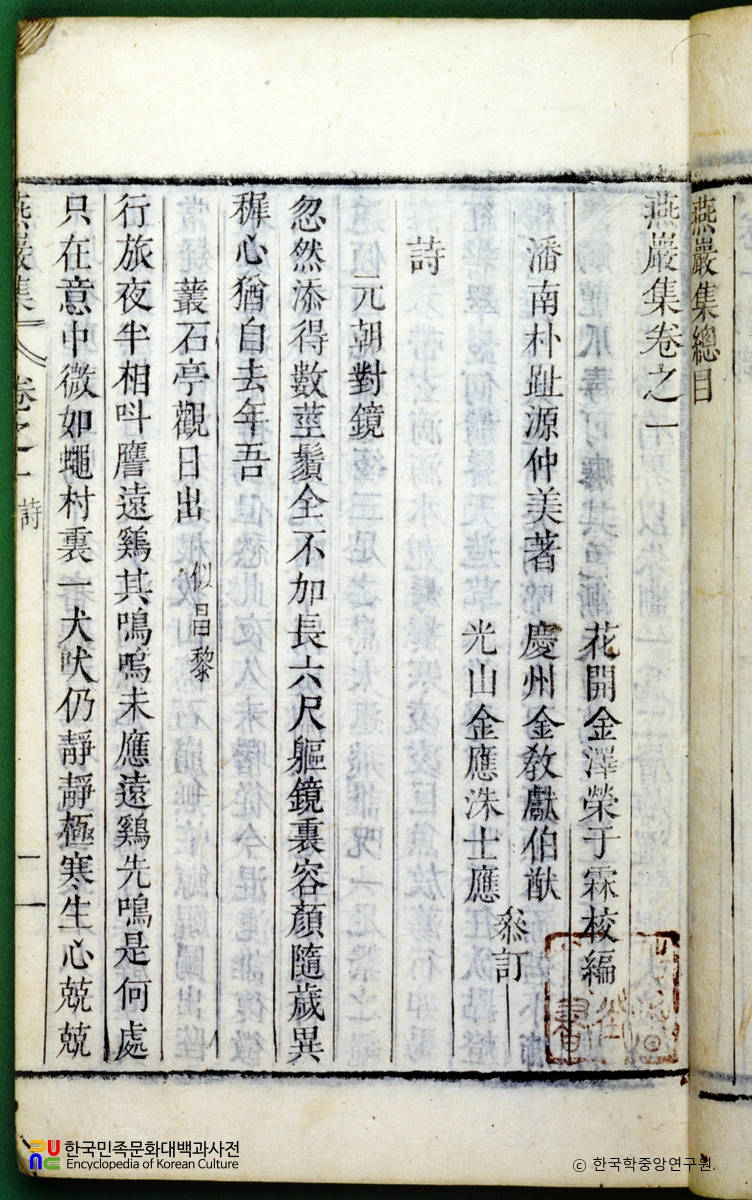 燕巖集總目
燕巖集卷之一
花開金澤榮于霖校編
潘南朴趾源仲美著 慶州金敎獻伯猷
光山金應洙士應
叅訂
詩
元朝對鏡
忽然添得數莖鬚全不加長六尺軀鏡裏容顏隨歲異
穉心猶自去年吾
叢石亭觀日出 似昌黎
行旅夜半相呌譍遠鷄其鳴鳴未應遠鷄先鳴是何處
只在意中微如蠅村裏一犬吠仍靜靜極寒生心兢兢
燕巖集 卷之一 詩 一
한국민족문화대백과사전
Encyclopedia of Korean Culture
ⓒ 한국학중앙연구원.